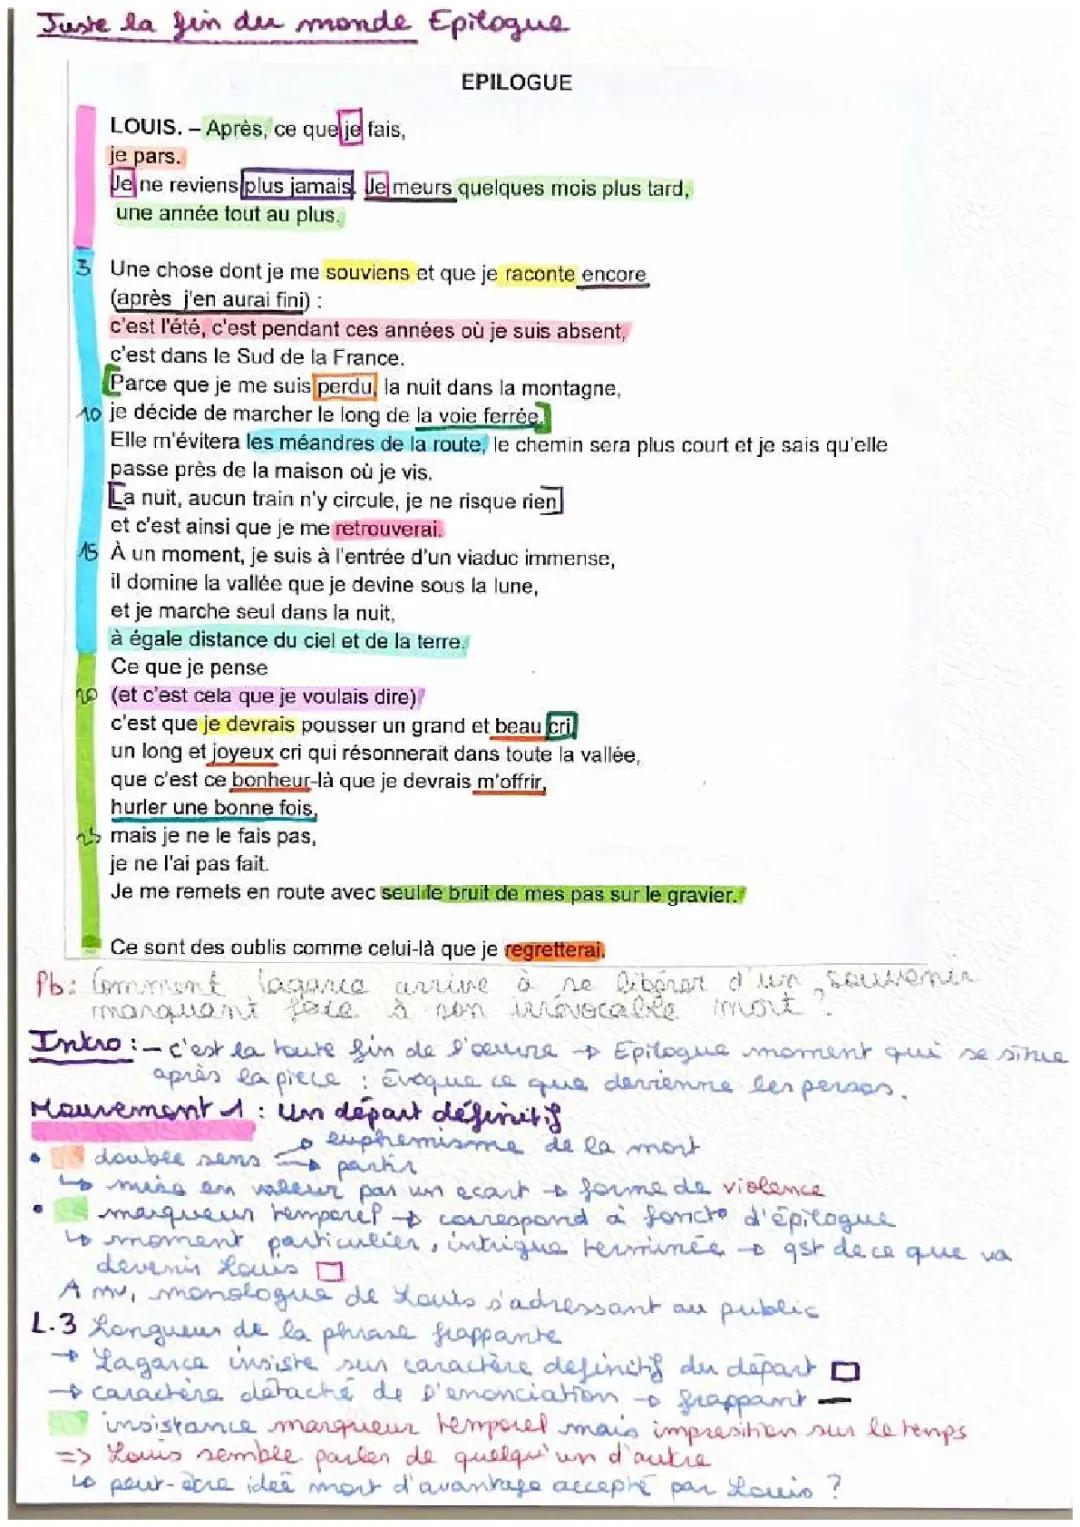 Juste la fin du monde Epilogue
EPILOGUE
LOUIS. – Après, ce que je fais,
je pars.
Je ne reviens plus jamais. Je meurs quelques mois plus tard,
une année tout au plus.
3 Une chose dont je me souviens et que je raconte encore
(après j'en aurai fini) :
c'est l'été, c'est pendant ces années où je suis absent,
c'est dans le Sud de la France.
Parce que je me suis perdu, la nuit dans la montagne,
10 je décide de marcher le long de la voie ferrée.
Elle m'évitera les méandres de la route, le chemin sera plus court et je sais qu'elle
passe près de la maison où je vis.
La nuit, aucun train n'y circule, je ne risque rien
et c'est ainsi que je me retrouverai.
15 À un moment, je suis à l'entrée d'un viaduc immense,
il domine la vallée que je devine sous la lune,
et je marche seul dans la nuit,
à égale distance du ciel et de la terre.
Ce que je pense
20 (et c'est cela que je voulais dire)
c'est que je devrais pousser un grand et beau cri,
un long et joyeux cri qui résonnerait dans toute la vallée,
que c'est ce bonheur-là que je devrais m'offrir,
hurler une bonne fois,
25 mais je ne le fais pas,
je ne l'ai pas fait.
Je me remets en route avec seul le bruit de mes pas sur le gravier.
Ce sont des oublis comme celui-là que je regretterai.
Pb: Comment Lagarce arrive à se libérer d'un souvenir
marquant face à son irrévocable mort ?
Intro : - c'est la toute fin de l'œuvre → Epilogue moment qui se situe
après la pièce : évoque ce que devienne les persos.
Mouvement 1 : Un départ définitif
• double sens → euphémisme de la mort
→ partir
↳ mise en valeur par un écart → forme de violence
• marqueur temporel → correspond à foncto d'épilogue
↳ moment particulier, intrigue terminée → qst de ce que va
devenir Louis
A mv, monologue de Louis s'adressant au public
L.3 Longueur de la phrase frappante
→ Lagarce insiste sur caractère définitif du départ
→ caractère détaché de l'énonciation → frappant
insistance marqueur temporel mais imprésition sur le temps
=> Louis semble parler de quelqu'un d'autre
↳ peut-être idée mort d'avantage accepté par Louis ?